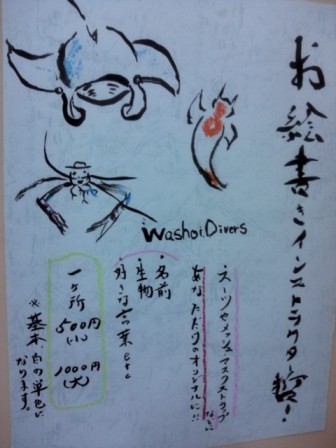 お絵書きインストラクタ彩!
Washoi.Divers
・スーツやメッシュ、マスクストラップなどに
あなただけのオリジナルに!!
・名前
生物
好きな言葉etc
一ヶ所
500円(小)
1000円(大)
※基本白の単色になります。